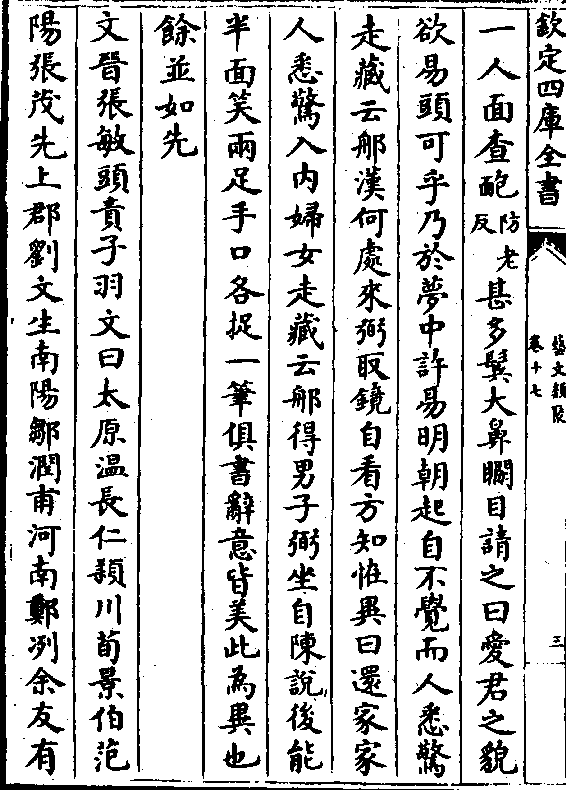 欽定四庫全書
藝文類聚
卷十七
三
一人面查皰防老反甚多鬢大鼻瞯目請之曰愛君之貌
欲易頭可乎乃於夢中許易明朝起自不覺而人悉驚
走藏云那漢何處來弼取鏡自看方知怪異曰還家家
人悉驚入內婦女走藏云那得男子弼坐自陳說後能
半面笑兩足手口各捉一筆俱書辭意皆美此為異也
餘並如先
文晉張敏頭責子羽文曰太原温長仁潁川荀景伯范
陽張茂先上郡劉文生南陽鄒潤甫河南鄭冽余友有